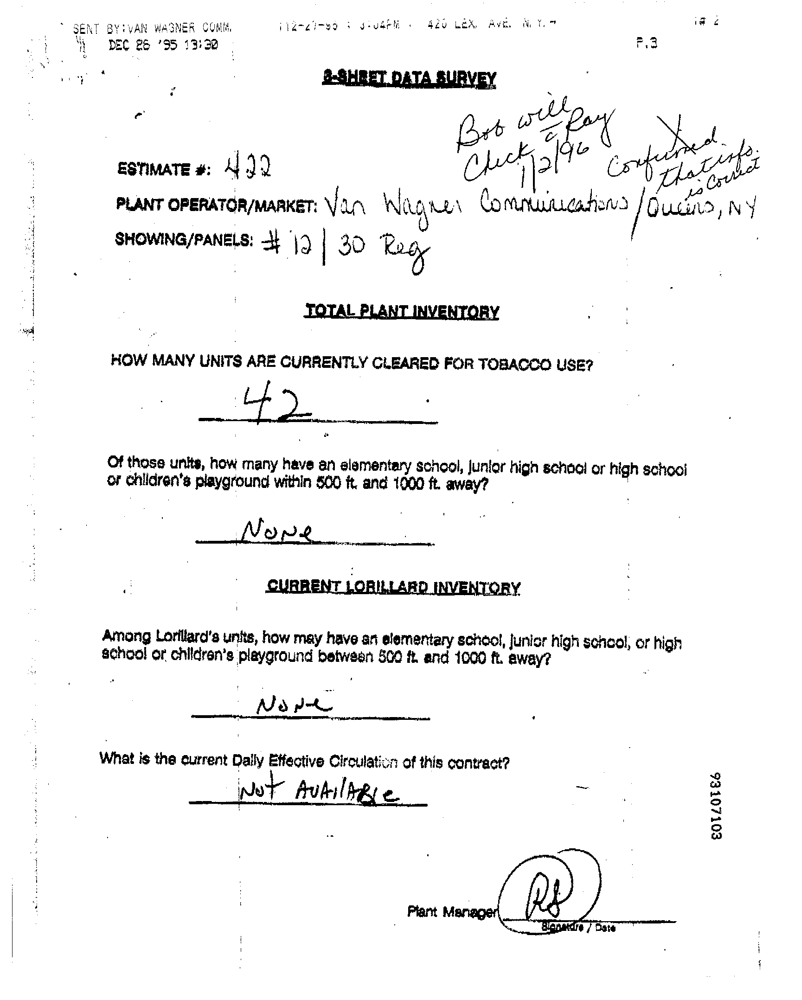 SENT BY:VAN WAGNER COMM. 12-27-95 : 3:04PM 420 LEX. AVE. N.Y.→ # 2
DEC 26 '95 13:30 P.3
8-SHEET DATA SURVEY
Bob will
Check c̄ Ray
1/2/96
Confirmed
that info.
is correct
ESTIMATE #: 422
PLANT OPERATOR/MARKET: Van Wagner Communications / Queens, NY
SHOWING/PANELS: # 12 / 30 Reg
TOTAL PLANT INVENTORY
HOW MANY UNITS ARE CURRENTLY CLEARED FOR TOBACCO USE?
42
Of those units, how many have an elementary school, junior high school or high school
or children's playground within 500 ft. and 1000 ft. away?
None
CURRENT LORILLARD INVENTORY
Among Lorillard's units, how may have an elementary school, junior high school, or high
school or children's playground between 500 ft. and 1000 ft. away?
None
What is the current Daily Effective Circulation of this contract?
Not AvAilABle
93107103
Plant Manager RS
Signature / Date